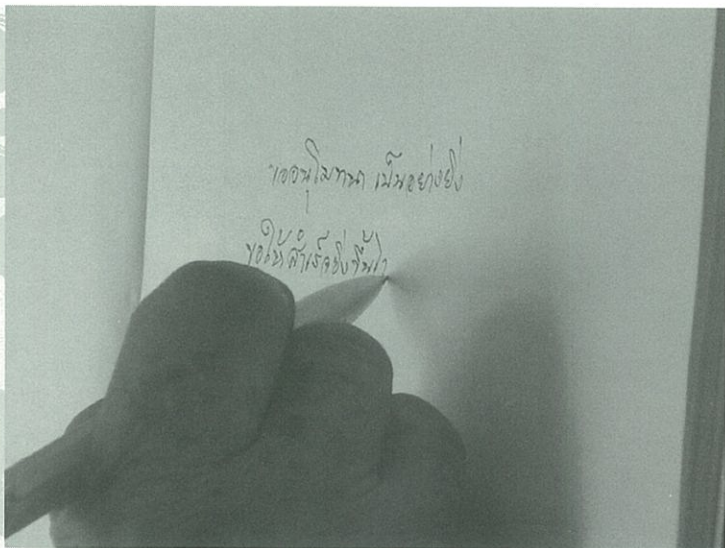 ขออนุโมทนา เป็นอย่างยิ่ง
ขอให้สำเร็จยิ่งขึ้นไ